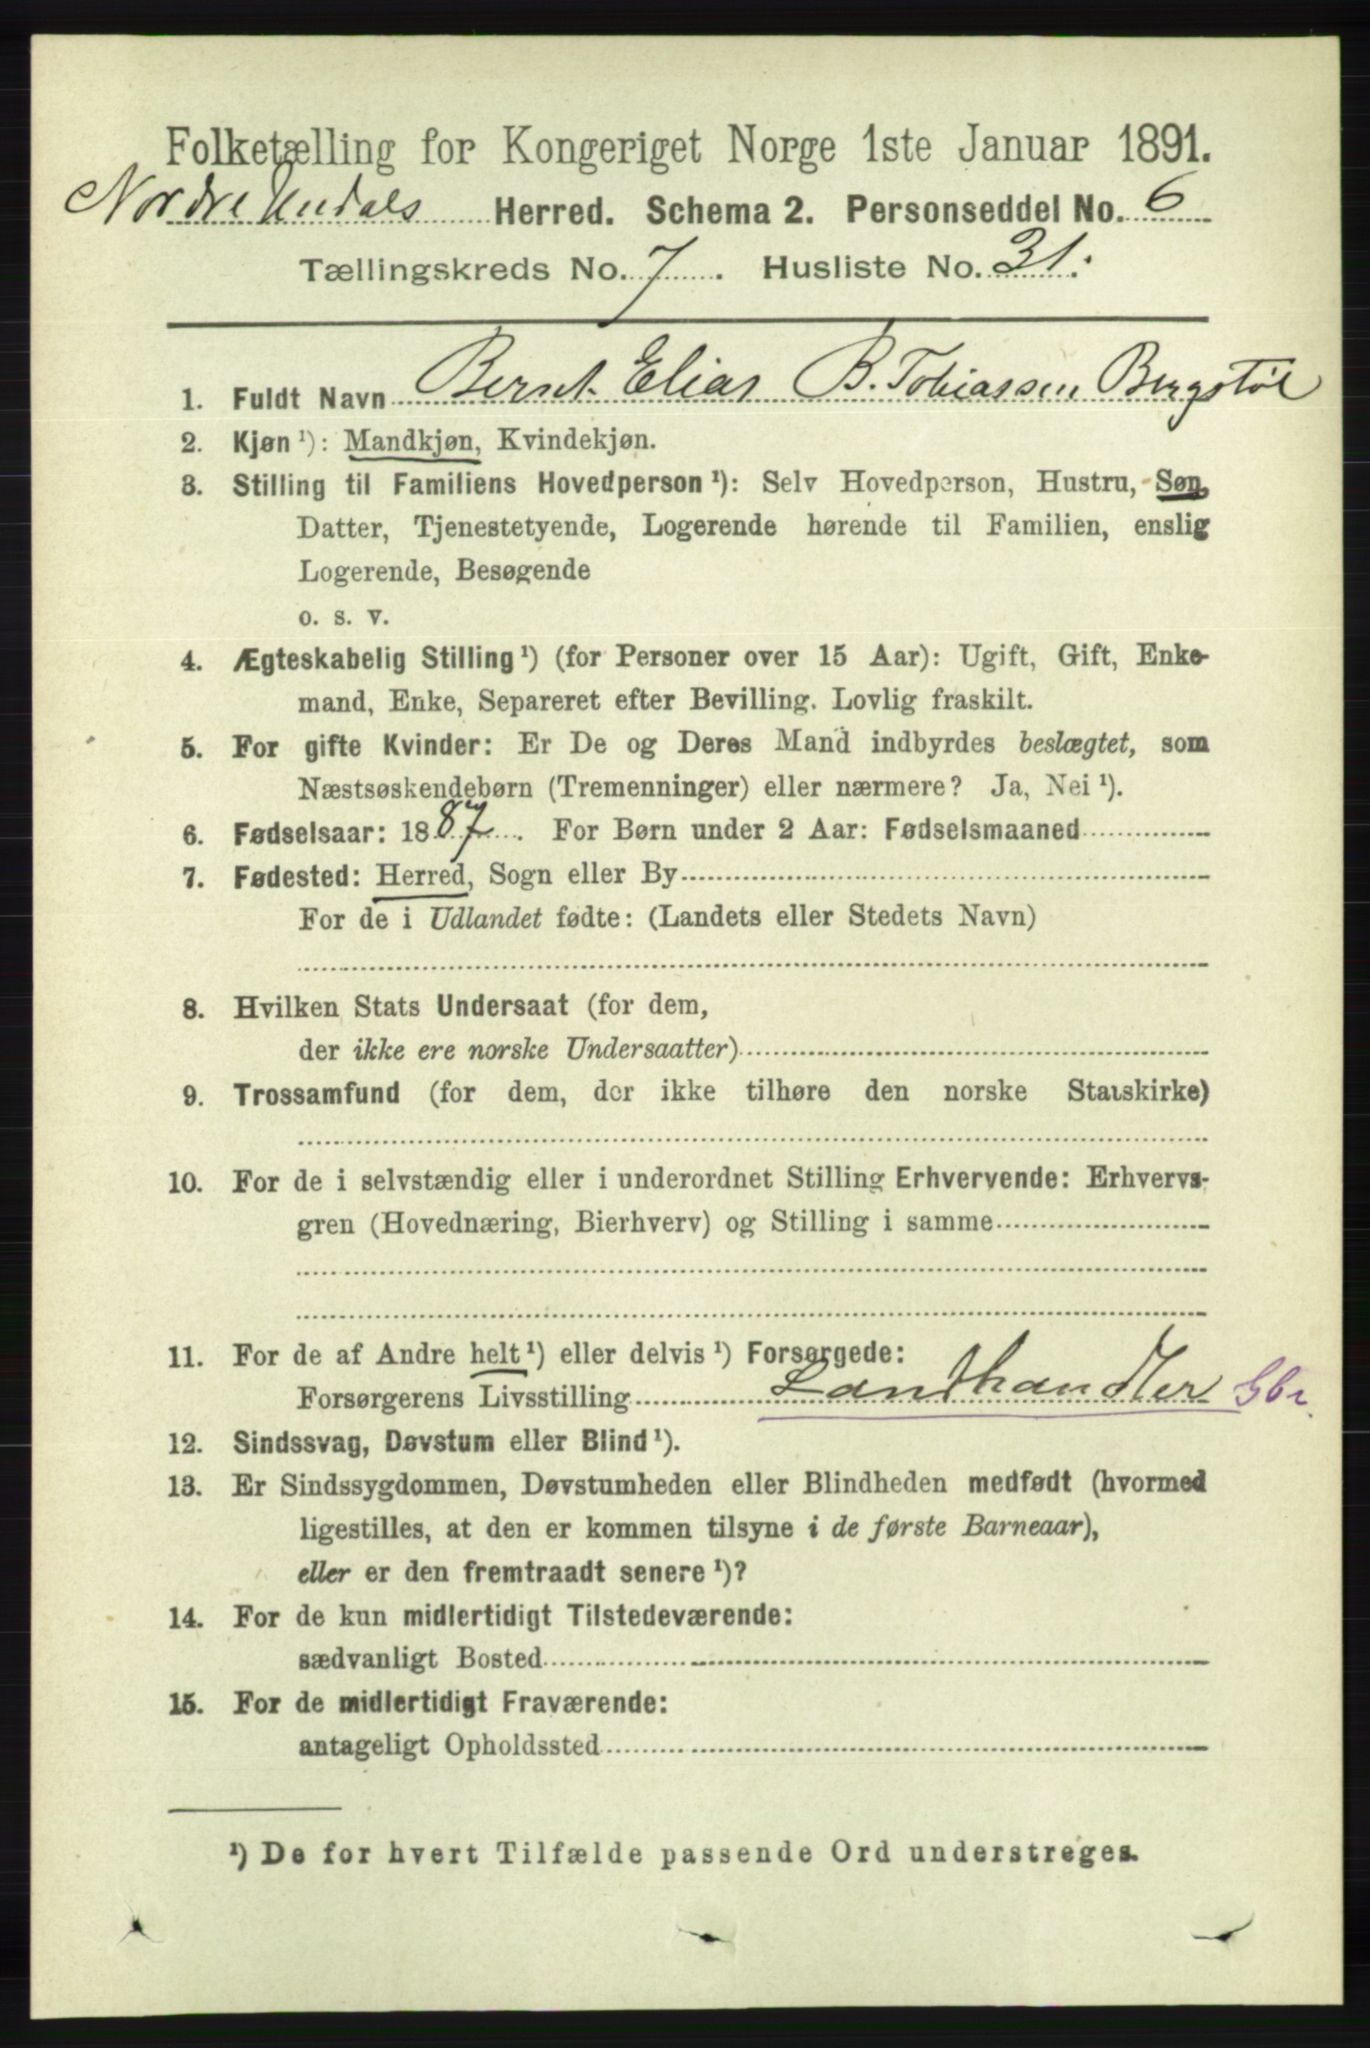 Folketælling for Kongeriget Norge 1ste Januar 1891.
Nordre Undals Herred. Schema 2. Personseddel No. 6
Tællingskreds No. 7. Husliste No. 31.
1. Fuldt Navn Bernt Elias B. Tobiassen Bergstøl
2. Kjøn ¹): Mandkjøn, Kvindekjøn.
3. Stilling til Familiens Hovedperson ¹): Selv Hovedperson, Hustru, Søn,
Datter, Tjenestetyende, Logerende hørende til Familien, enslig
Logerende, Besøgende
o. s. v.
4. Ægteskabelig Stilling ¹) (for Personer over 15 Aar): Ugift, Gift, Enke-
mand, Enke, Separeret efter Bevilling. Lovlig fraskilt.
5. For gifte Kvinder: Er De og Deres Mand indbyrdes beslægtet, som
Næstsøskendebørn (Tremenninger) eller nærmere? Ja, Nei ¹).
6. Fødselsaar: 1887. For Børn under 2 Aar: Fødselsmaaned
7. Fødested: Herred, Sogn eller By
For de i Udlandet fødte: (Landets eller Stedets Navn)
8. Hvilken Stats Undersaat (for dem,
der ikke ere norske Undersaatter)
9. Trossamfund (for dem, der ikke tilhøre den norske Statskirke)
10. For de i selvstændig eller i underordnet Stilling Erhvervende: Erhvervs-
gren (Hovednæring, Bierhverv) og Stilling i samme
11. For de af Andre helt ¹) eller delvis ¹) Forsørgede:
Forsørgerens Livsstilling Landhandler Gbr.
12. Sindssvag, Døvstum eller Blind ¹).
13. Er Sindssygdommen, Døvstumheden eller Blindheden medfødt (hvormed
ligestilles, at den er kommen tilsyne i de første Barneaar),
eller er den fremtraadt senere ¹)?
14. For de kun midlertidigt Tilstedeværende:
sædvanligt Bosted
15. For de midlertidigt Fraværende:
antageligt Opholdssted
¹) De for hvert Tilfælde passende Ord understreges.